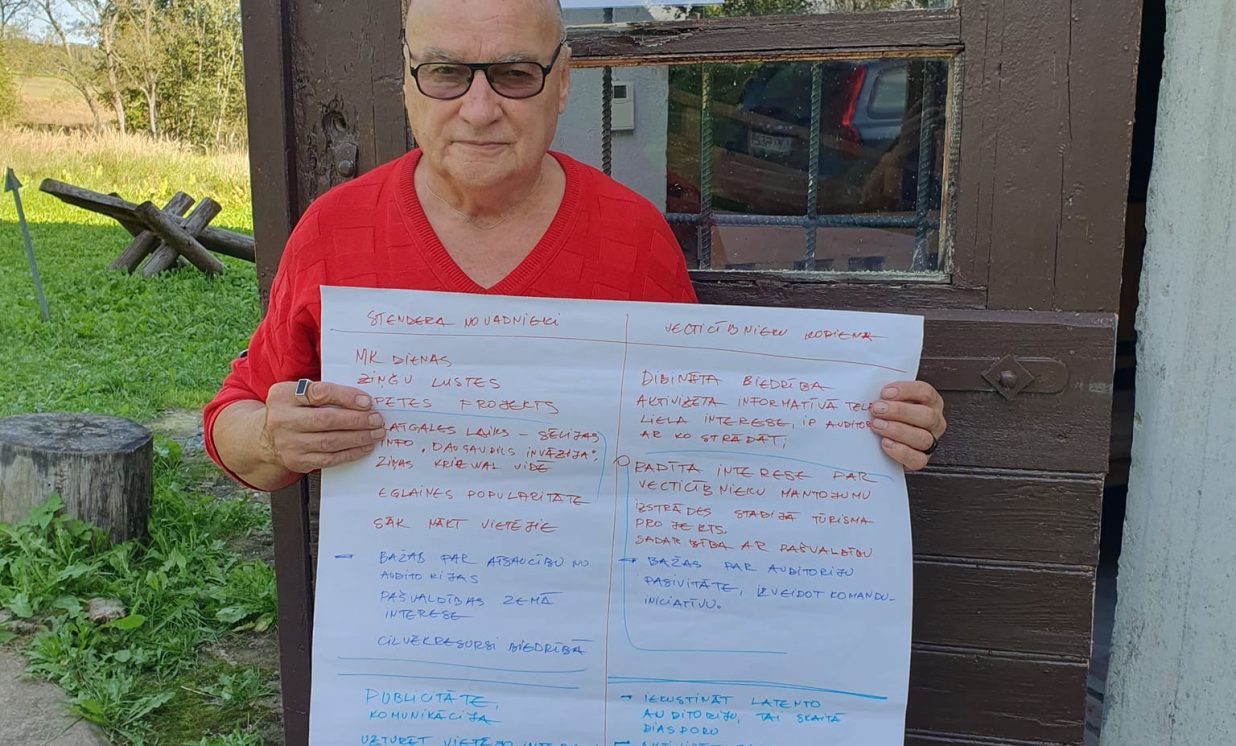 STENDERA NOVADNIEKI
MK DIENAS
ZIŅĢU LUSTES
PĒTES PROJEKTS
LATGALES LAIKS – SĒLIJAS
INFO, "DAUGAVPILS INVĀZIJA",
ZIŅAS KRIEVVAL. VIDĒ
EGLAINES POPULARITĀTE
SĀK NĀKT VIETĒJIE
– BAŽAS PAR ATSAUCĪBU NO
AUDITORIJAS
PAŠVALDĪBAS ZEMĀ
INTERESE
CILVĒKRESURSI BIEDRĪBĀ
PUBLICITĀTE,
KOMUNIKĀCIJA
UZTURĒT VIETĒJO
VECTICĪBNIEKU KODIENA
DIBINĀTA BIEDRĪBA
AKTIVIZĒTA INFORMATĪVĀ
LIELA INTERESE, IR
AR KO STRĀDĀT;
RADĪTA INTERESE PAR
VECTICĪBNIEKU MANTOJUMU
IZSTRĀDES STADIJĀ TŪRISMA
PROJEKTS.
SADARBĪBA AR PAŠVALDĪBU
– BAŽAS PAR AUDITORIJU
PASIVITĀTE, IZVEIDOT KOMANDU-
INICIATĪVU.
– IEKUSTINĀT LATENTO
AUDITORIJU, TAI SKAITĀ
DIASPORU